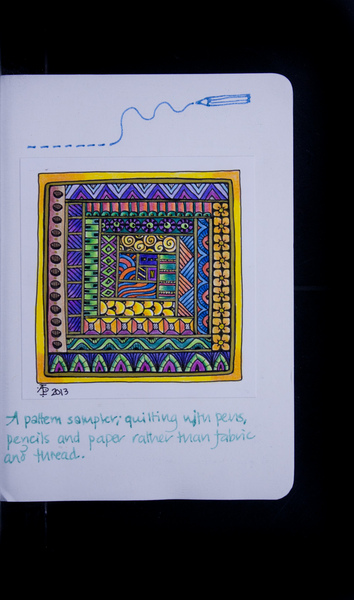 2013
A pattern sampler; quilting with pens,
pencils and paper rather than fabric
and thread.